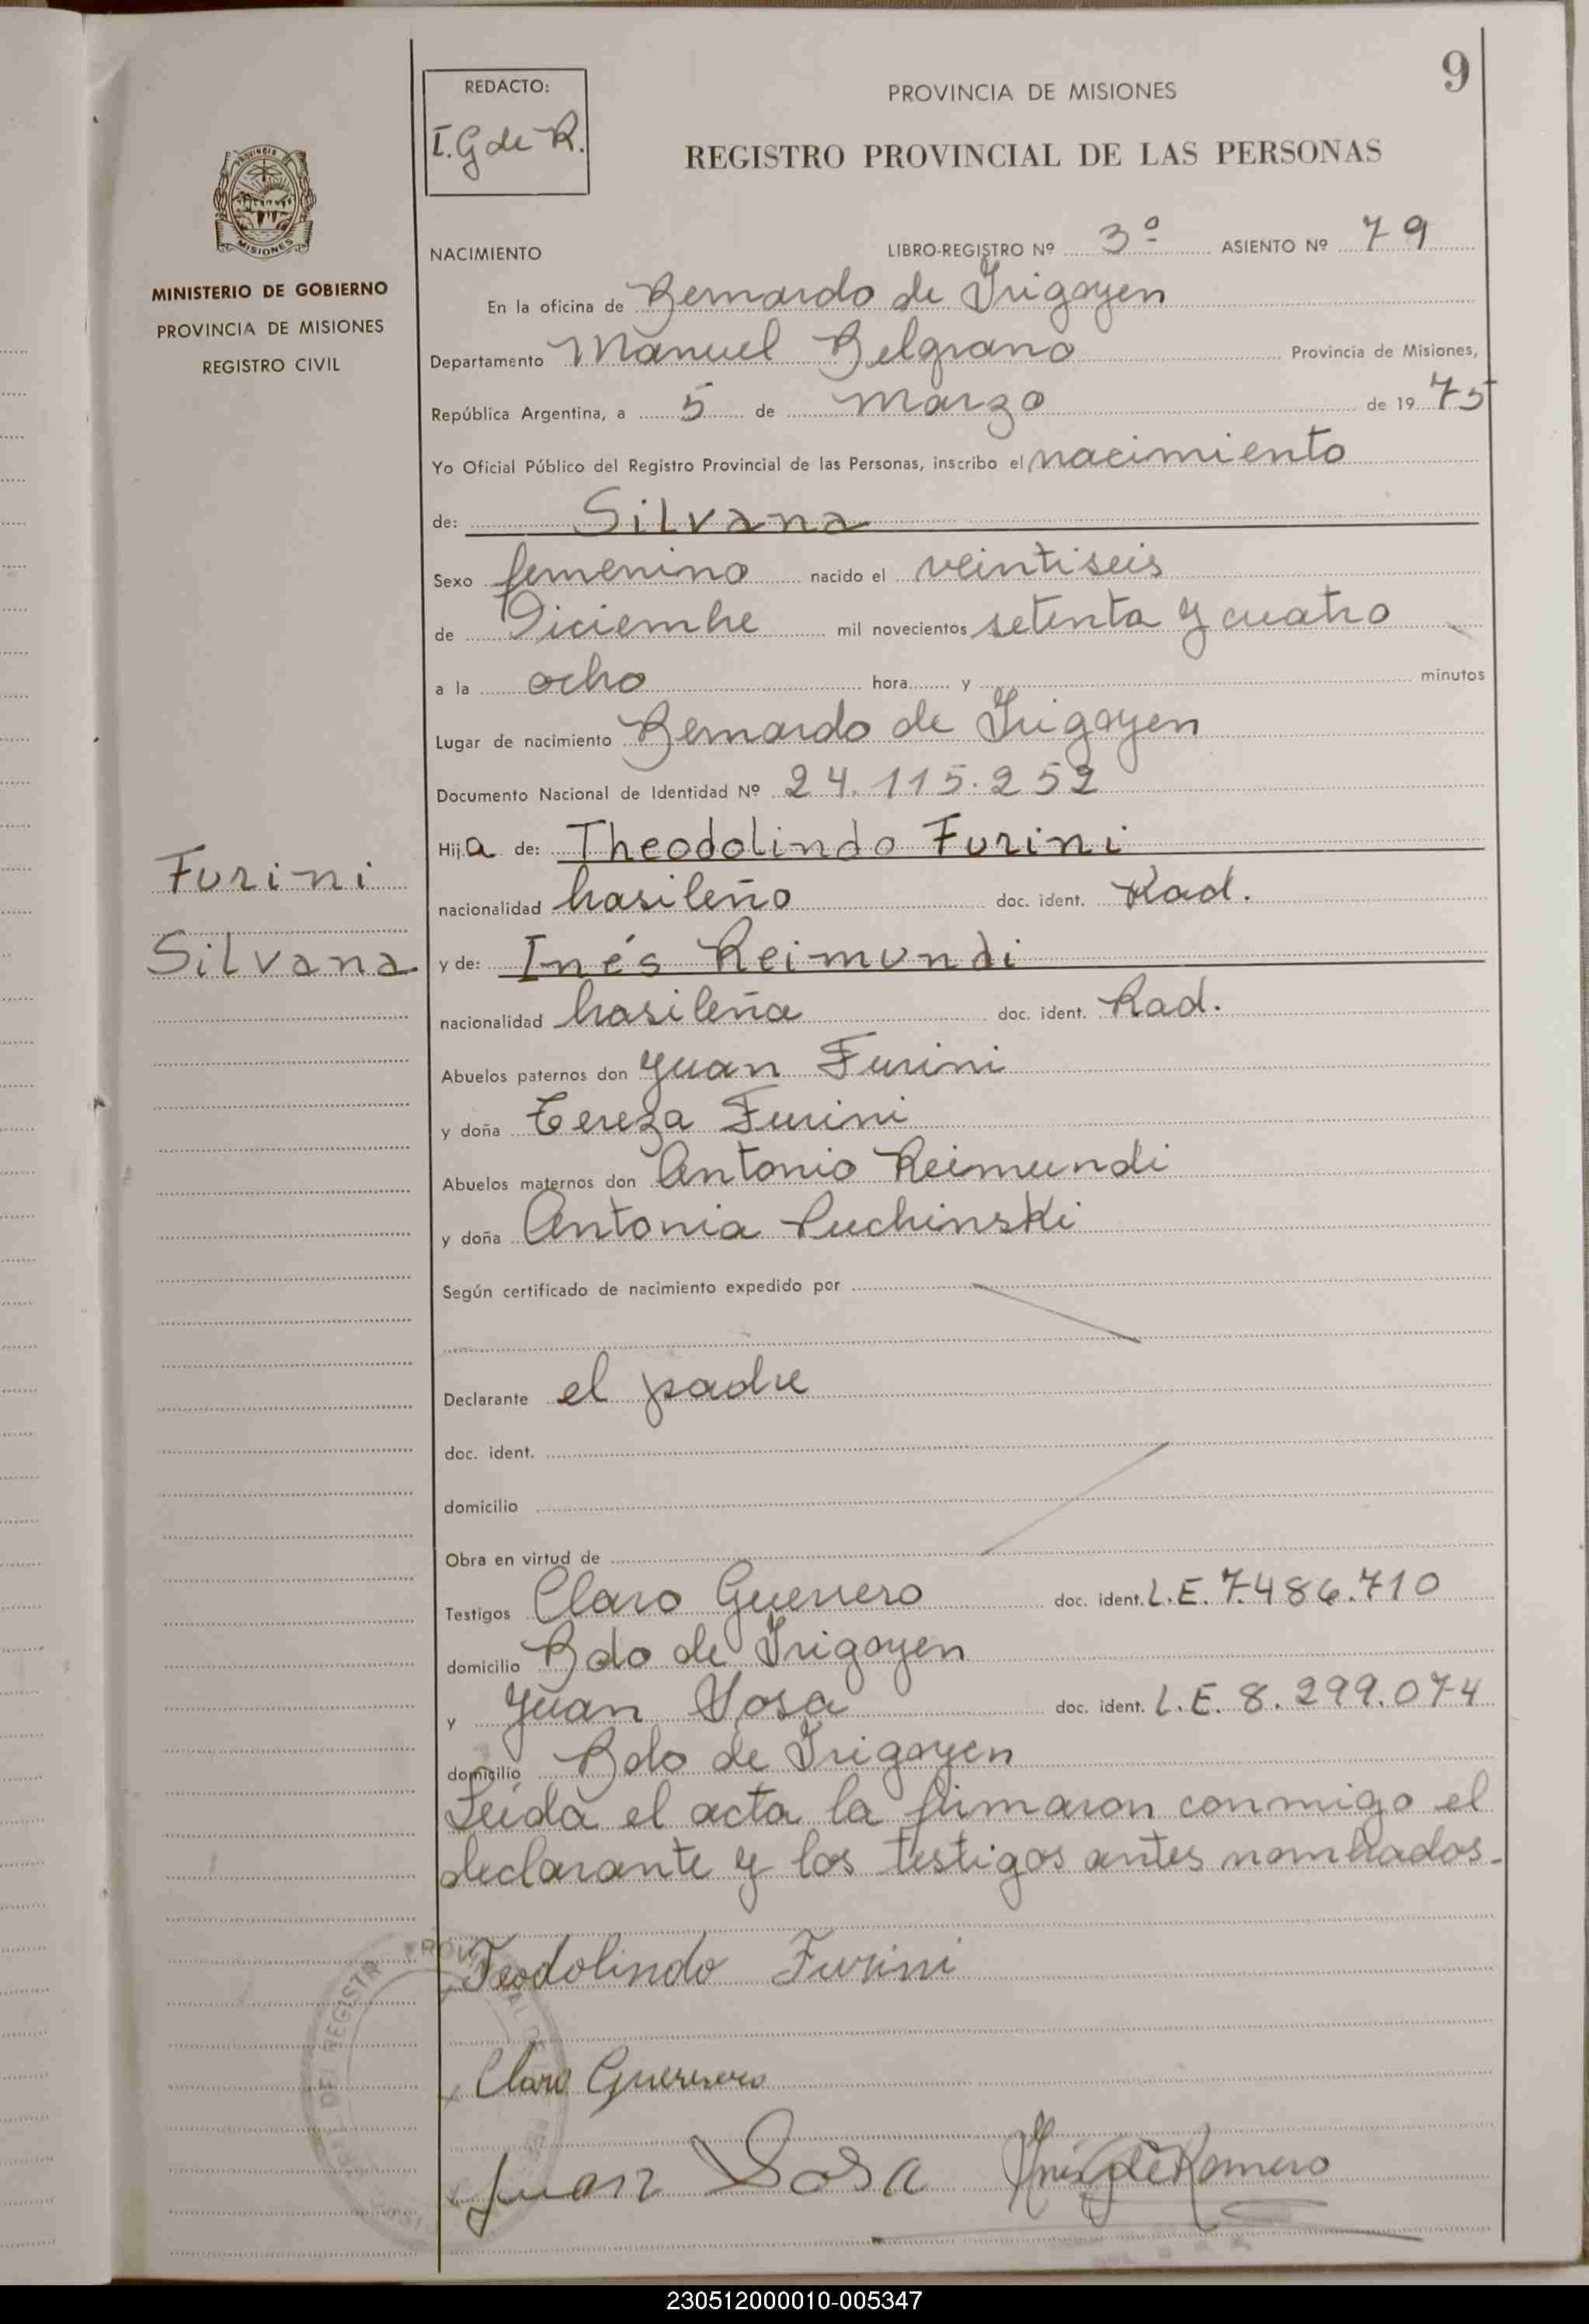 9
REDACTO:
I. G de R.
PROVINCIA DE MISIONES
REGISTRO PROVINCIAL DE LAS PERSONAS
MISIONES
MINISTERIO DE GOBIERNO
PROVINCIA DE MISIONES
REGISTRO CIVIL
NACIMIENTO LIBRO-REGISTRO Nº 3º ASIENTO Nº 79
En la oficina de Bernardo de Irigoyen
Departamento Manuel Belgrano Provincia de Misiones,
República Argentina, a 5 de marzo de 1975
Yo Oficial Público del Registro Provincial de las Personas, inscribo el nacimiento
de: Silvana
Sexo femenino nacido el veintiseis
de Diciembre mil novecientos setenta y cuatro
a la ocho hora y minutos
Lugar de nacimiento Bernardo de Irigoyen
Documento Nacional de Identidad Nº 24.115.252
Hija de: Theodolindo Furini
nacionalidad brasileño doc. ident. Rad.
Furini
Silvana
y de: Inés Reimundi
nacionalidad brasileña doc. ident. Rad.
Abuelos paternos don Juan Furini
y doña Tereza Furini
Abuelos maternos don Antonio Reimundi
y doña Antonia Puchinski
Según certificado de nacimiento expedido por
Declarante el padre
doc. ident.
domicilio
Obra en virtud de
Testigos Claro Guerrero doc. ident. L.E. 7.486.710
domicilio Bdo de Irigoyen
y Juan Sosa doc. ident. L.E. 8.299.074
domicilio Bdo de Irigoyen
Leída el acta la firmaron conmigo el
declarante y los testigos antes nombrados.
Teodolindo Furini
Claro Guerrero
Juan Sosa Inés G de Romero
230512000010-005347